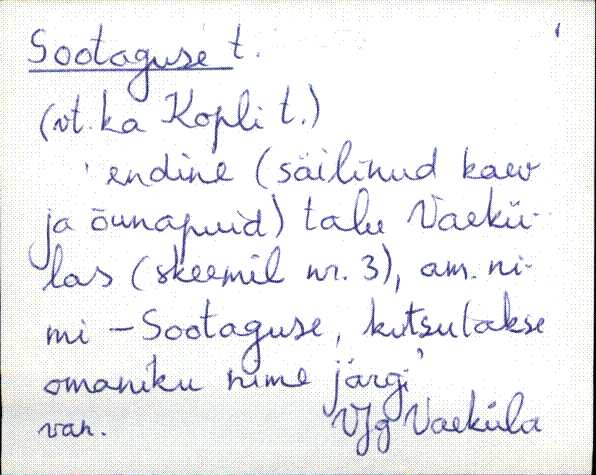 Sootaguse t.
(vt. ka Kopli t.)
' endine (säilinud kaev
ja õunapuid) talu Vaekü-
las (skeemil nr. 3), am. ni-
mi - Sootaguse, kutsutakse
omaniku nime järgi'
van. VJg Vaeküla